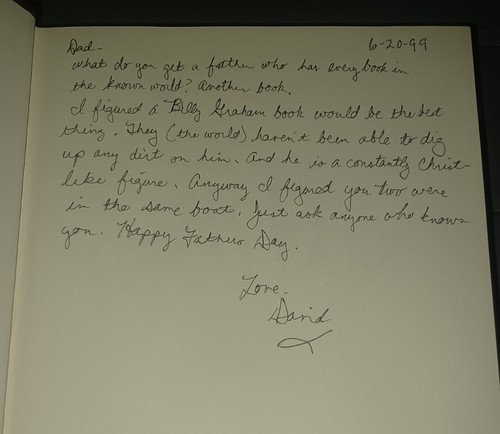 Dad- 6-20-99
What do you get a father who has every book in
the known world? Another book.
I figured a Billy Graham book would be the best
thing. They (the world) haven't been able to dig
up any dirt on him. And he is a constantly Christ-
like figure. Anyway I figured you two were
in the same boat. Just ask anyone who knows
you. Happy Fathers Day.
Love-
David